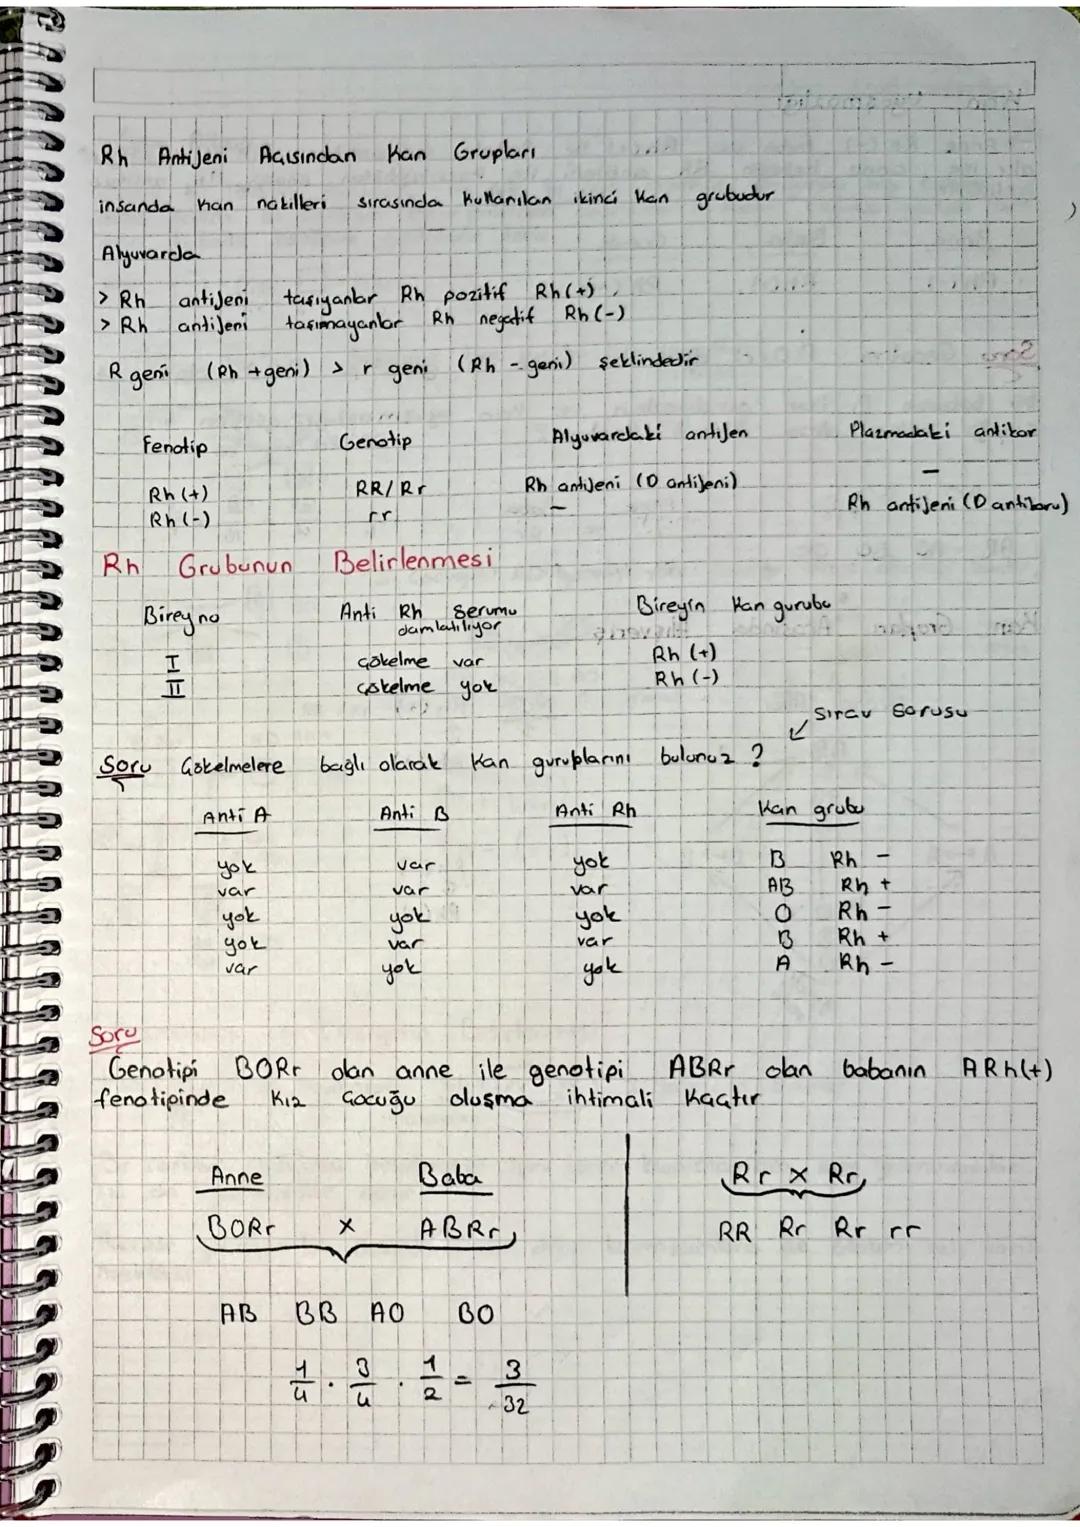 Rh Antijeni Açısından Kan Grupları
insanda kan nakilleri sırasında kullanılan ikinci kan grubudur
Alyuvarda
> Rh antijeni taşıyanlar Rh pozitif Rh(+)
> Rh antijeni taşımayanlar Rh negatif Rh(-)
R geni (Rh +geni) > r geni (Rh - geni) şeklindedir
Fenotip Genotip Alyuvardaki antijen Plazmadaki antikor
Rh(+) RR/Rr Rh antijeni (D antijeni) -
Rh(-) rr - Rh antijeni (D antikoru)
Rh Grubunun Belirlenmesi
Birey no Anti Rh Serumu damlatılıyor Bireyin Kan gurubu
I çökelme var Rh (+)
II çökelme yok Rh (-)
Sınav Sorusu
Soru Çökelmelere bağlı olarak kan guruplarını bulunuz ?
Anti A Anti B Anti Rh Kan grubu
yok var yok B Rh -
var var var AB Rh +
yok yok yok O Rh -
yok var var B Rh +
var yok yok A Rh -
Soru
Genotipi BORr olan anne ile genotipi ABRr olan babanın ARh(+)
fenotipinde kız çocuğu oluşma ihtimali kaçtır
Anne Baba Rr x Rr
BORr x ABRr RR Rr Rr rr
AB BB AO BO
1/4 . 3/4 . 1/2 = 3/32